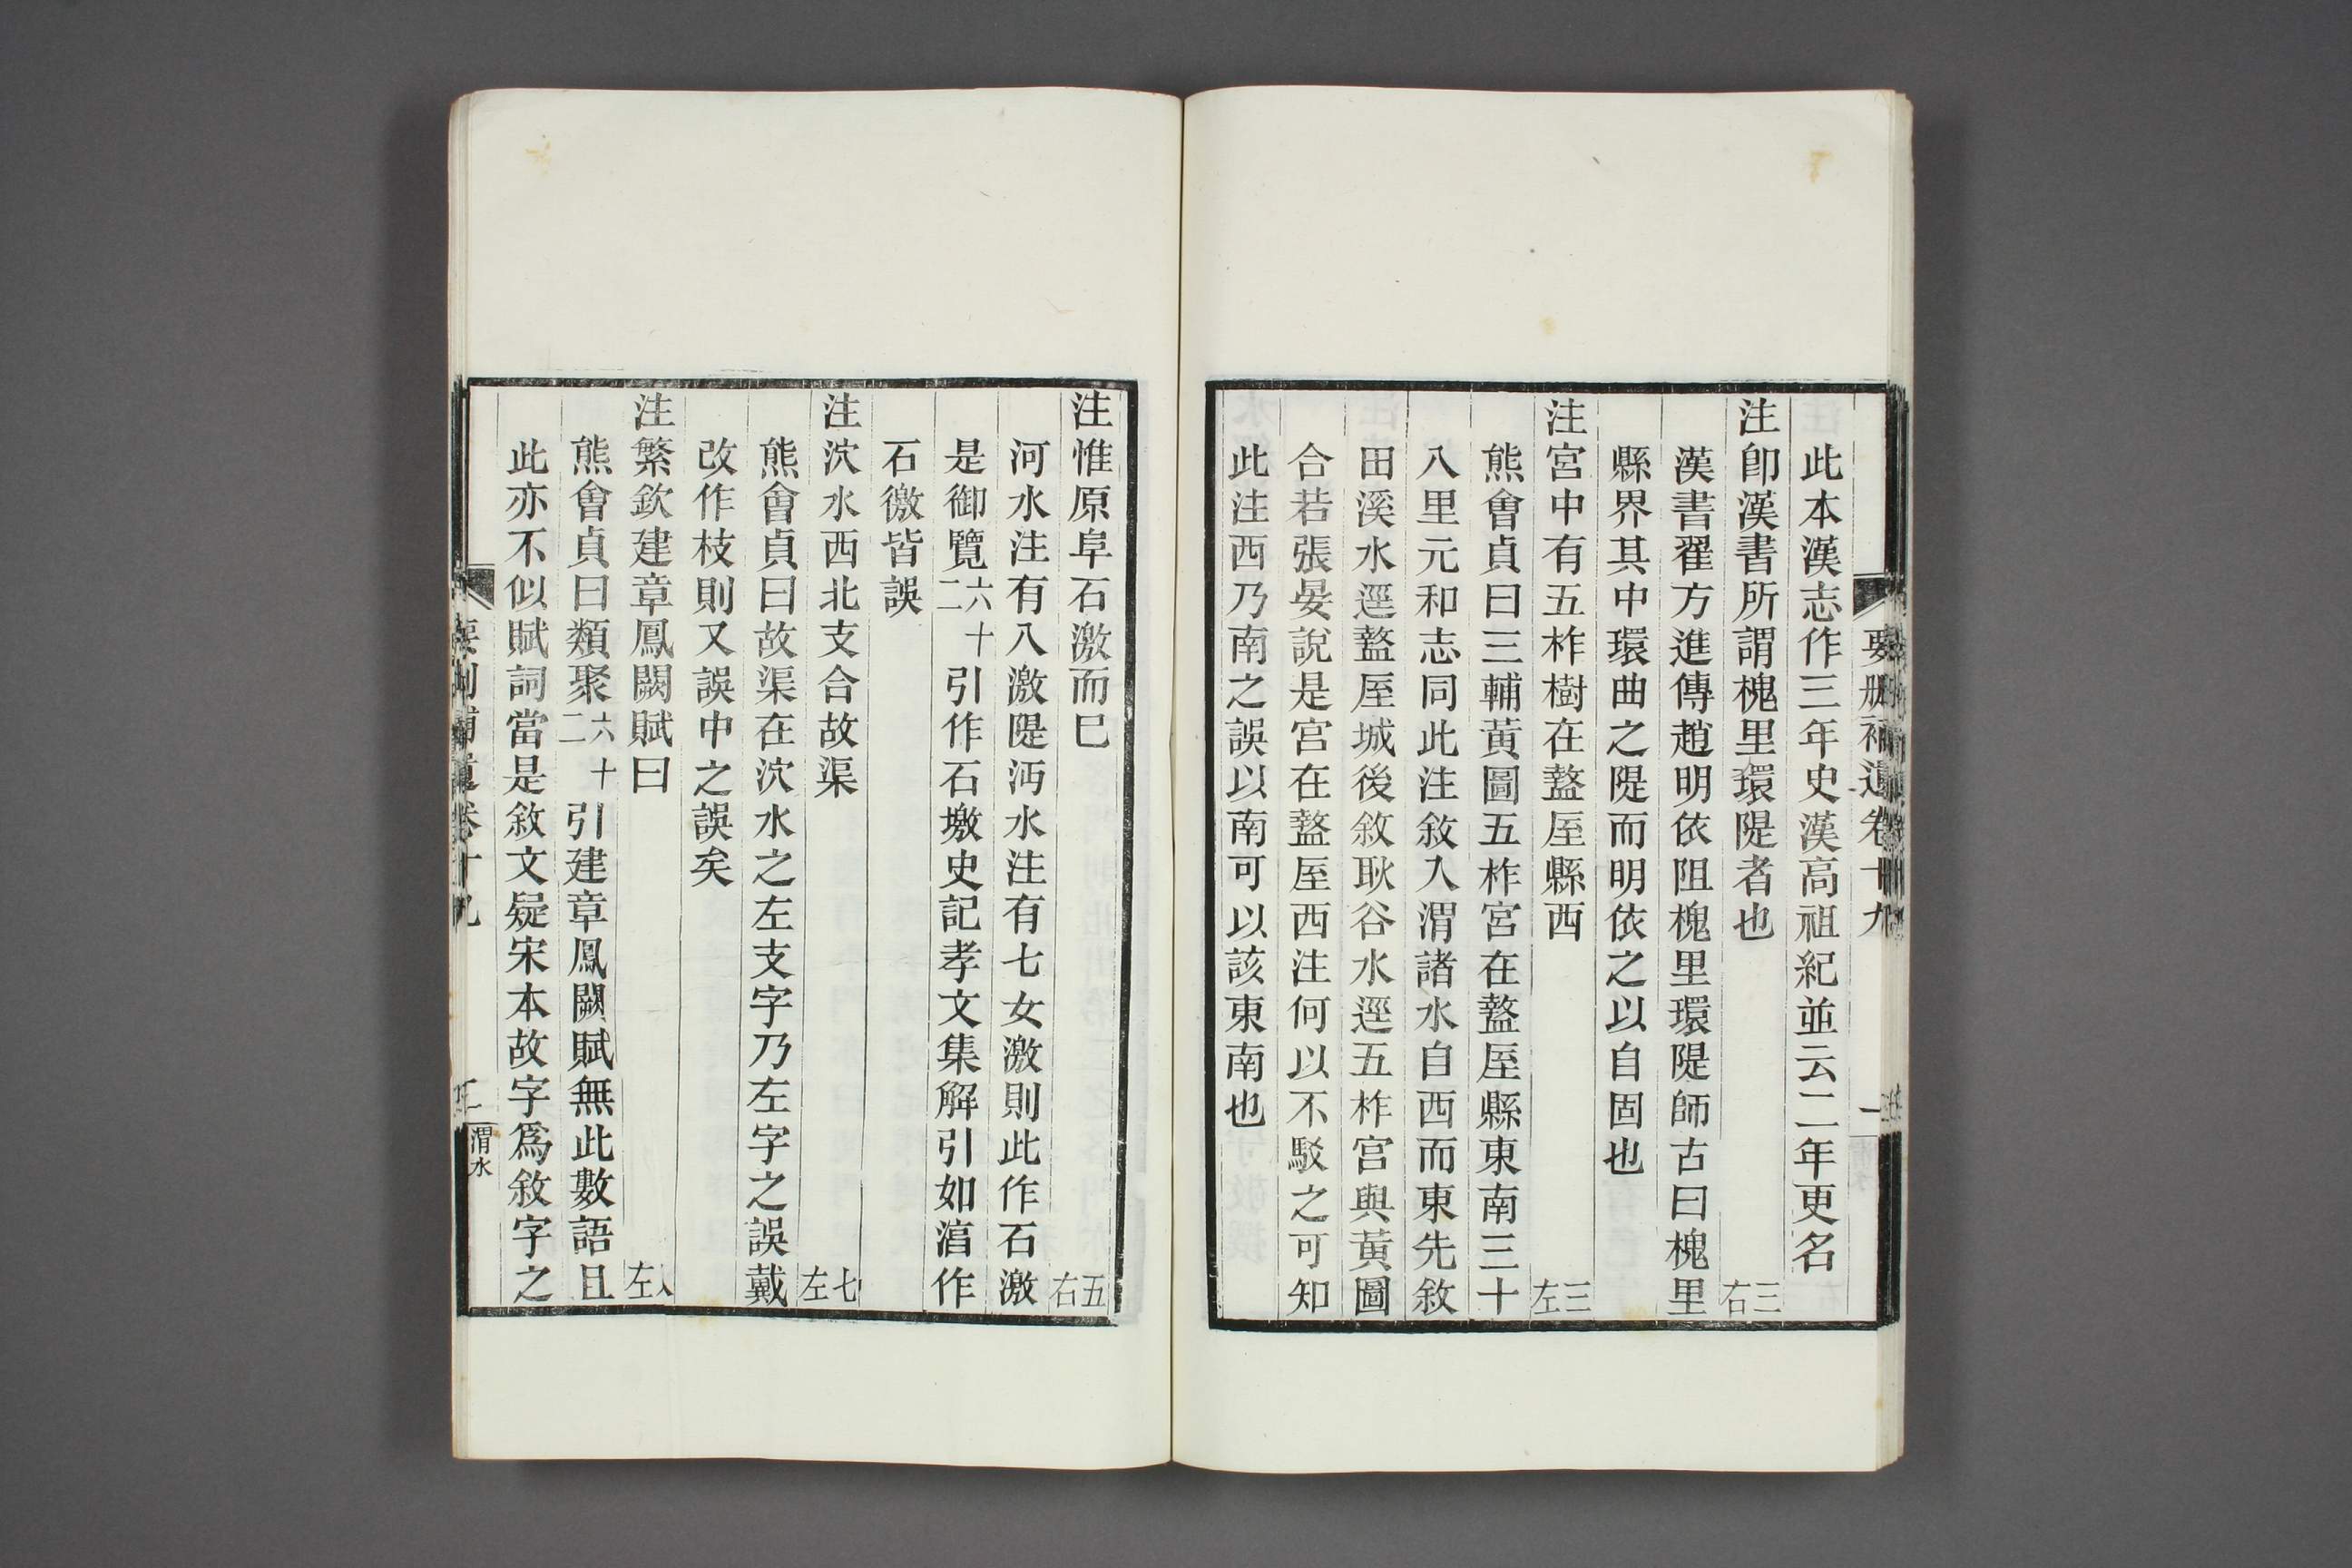 要刪補遺卷十九
此本漢志作三年史漢高祖紀並云二年更名
注卽漢書所謂槐里環隄者也 三右
漢書翟方進傳趙明依阻槐里環隄師古曰槐里
縣界其中環曲之隄而明依之以自固也
注宮中有五柞樹在盩厔縣西 三左
熊會貞曰三輔黃圖五柞宮在盩厔縣東南三十
八里元和志同此注敘入渭諸水自西而東先敘
田溪水逕盩厔城後敘耿谷水逕五柞宮與黃圖
合若張晏說是宮在盩厔西注何以不駁之可知
此注西乃南之誤以南可以該東南也
注惟原阜石激而巳 五右
河水注有八激隄沔水注有七女激則此作石激
是御覽六十二引作石墽史記孝文集解引如湻作
石徼皆誤
注泬水西北支合故渠 七左
熊會貞曰故渠在泬水之左支字乃左字之誤戴
改作枝則又誤中之誤矣
注繁欽建章鳳闕賦曰 八左
熊會貞曰類聚六十二引建章鳳闕賦無此數語且
此亦不似賦詞當是敘文疑宋本故字爲敘字之
要刪補遺卷十九 渭水